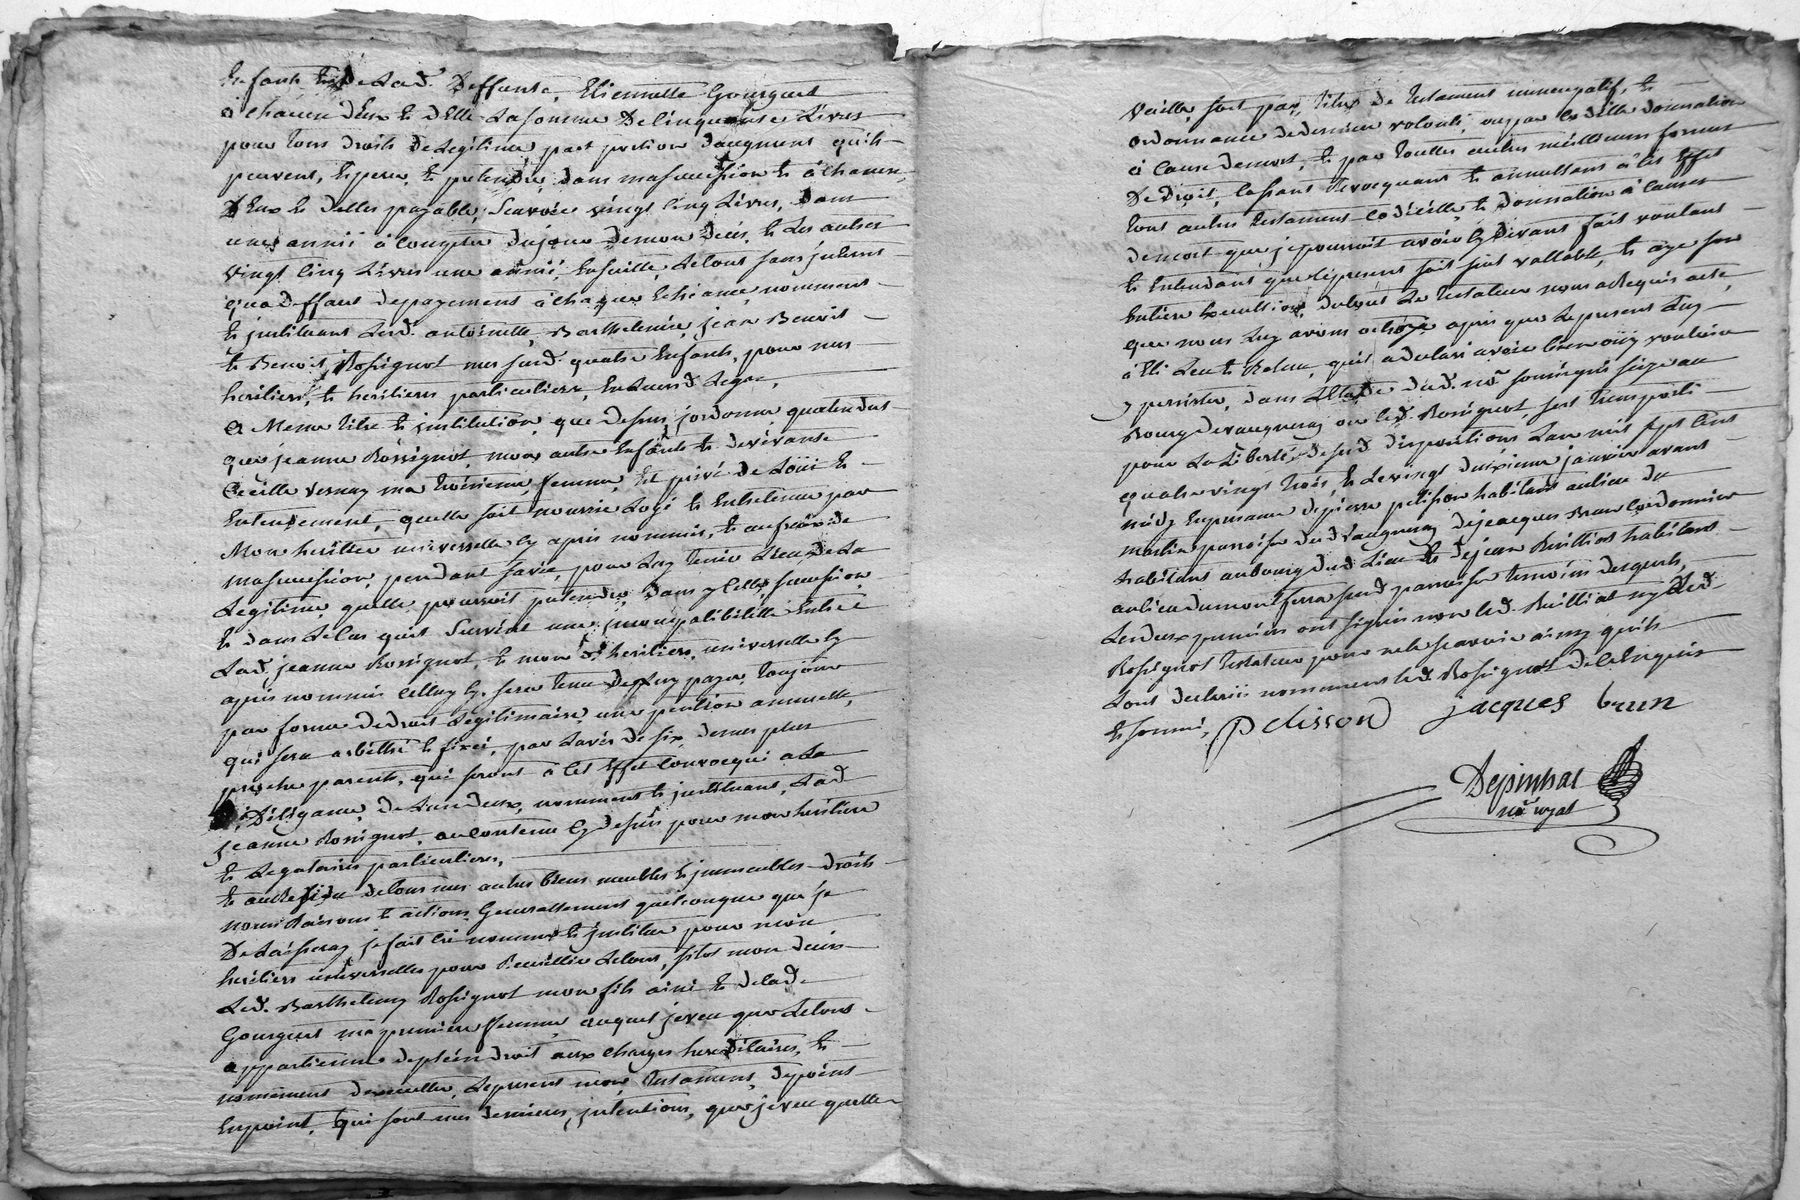 Enfants et de Lad. Deffunte, Etiennette Gourguet
a chacun d'Eux et d'Elle La somme De Cinquante Livres
pour tous droits de Legitime, part portion d'augment quils
peuvent, Esperer et pretendre, dans ma succession et a chacun,
D'Eux et d'elles payable, Scavoir vingt Cinq Livres, Dans
une année a Compter du jour de mon deces, et Les autres
vingt Cinq Livres une année, Ensuitte, Letout sans jnterest
qu'a deffaut depayement a chaque Echeance, nommant
Et jnstituant Lesd. antoinette, Barthelemie, jean Benoit
et Benoit Rossignot mes susd. quatre Enfants, pour mes
heritiers, et heritieres particulieres, En Leursd. Legat,
A Meme titre et jnstitution, que dessus, jordonne, qu'attendut
que jeanne Rossignot, mon autre Enfant et de vivante
Cecille vernay ma troisieme, femme, Est privé de Loüie Et
Entendement, quelle soit nourrie Logé et Entretenue par
Mon heritier universelle Cy apres nommé, et aux frais de
ma succession, pendant sa vie, pour Luy tenir Lieu, de La
Legitime, quelle pourroit pretendre, Dans yCelle, succession
Et dans Le Cas qu'il Survint une jncompatibilitte Entre
Lad. jeanne Rossignot, et mon d. heritiers, universelle Cy
apres nommé Celluy Cy sera tenu De Luy payer toujours
par forme de droit Legitimaire, une pention annuelle,
qui sera arbitré et fixée, par L'avis de six, de mes plus
proche parents, qui seront a Cet Effet Convocqué a La
Diligance, De L'un d'eux, nommant et jnstituant, Lad
jeanne Rossignot, au contenu Cy dessus pour mon heritiere
Et Legataire particuliere,
Et au Residu de tous mes autres biens meubles et jmmeubles droits
noms Raisons et actions Generallement quelconque que je
De Laisseray, je fait Cré nomme et jnstitue pour mon
heritiers universelles pour Recueillir Letout, sitot mon deces
Led. Barthelemy Rossignot mon fils ainé Et de Lad.
Gourguet ma premiere femme, auquel jeveu que Letout
appartienne de plein droit aux charges hereditaires, Et
nommément d'executter, Lepresent mon, testament, depoint
En point, qui sont mes dernieres, jntentions, que jeveu quelle
vaille, soit par, titre De testament nuncupatif, Et
ordonnance de derniere volonté, ou par Codicille donnation
a Cause demort, Et par touttes autres meilleures formes
De droit, Cassant Revocquant et annullant a Cet Effet
tout autres testament Codicille, et donnation a Cause
demort que je pourroit avoir Cy Devant fait voulant
Et Entendant que Lepresent soit seul vallable, Et aye son
Entiere Execution, dutout Le testateur nous a Requis acte,
que nous Luy avons octroyé apres que Lepresent Luy
a Eté Leu et Releu, qu'il a declaré avoir bien oüy vouloir
y persister, dans Letude dud. no.re soussigné sise au
Bourg de vaugneray ou Led. Rossignot, sest transporté
pour La Liberté de ses d. dispositions L'an mil sept Cent
quatre vingt trois, Et Le vingt deuxieme janvier avant
midy En presence de pierre pelisson habitant au lieu du
martin parroisse dud. vaugneray dejacques Brun Cordonnier
habitant au bourg dud. Lieu Et dejean Rivilliot habitant
au lieu dumont ferra susd. parroisse temoins desquels,
Les deux premiers ont signés non led. Rivilliot ny Led.
Rossignot testateur pour nele scavoir ainsy quils
L'ont declaré nommement led. Rossignot de ce Enquis
Et sommé, Pelisson jacques brun
Depinhac
no.re royal